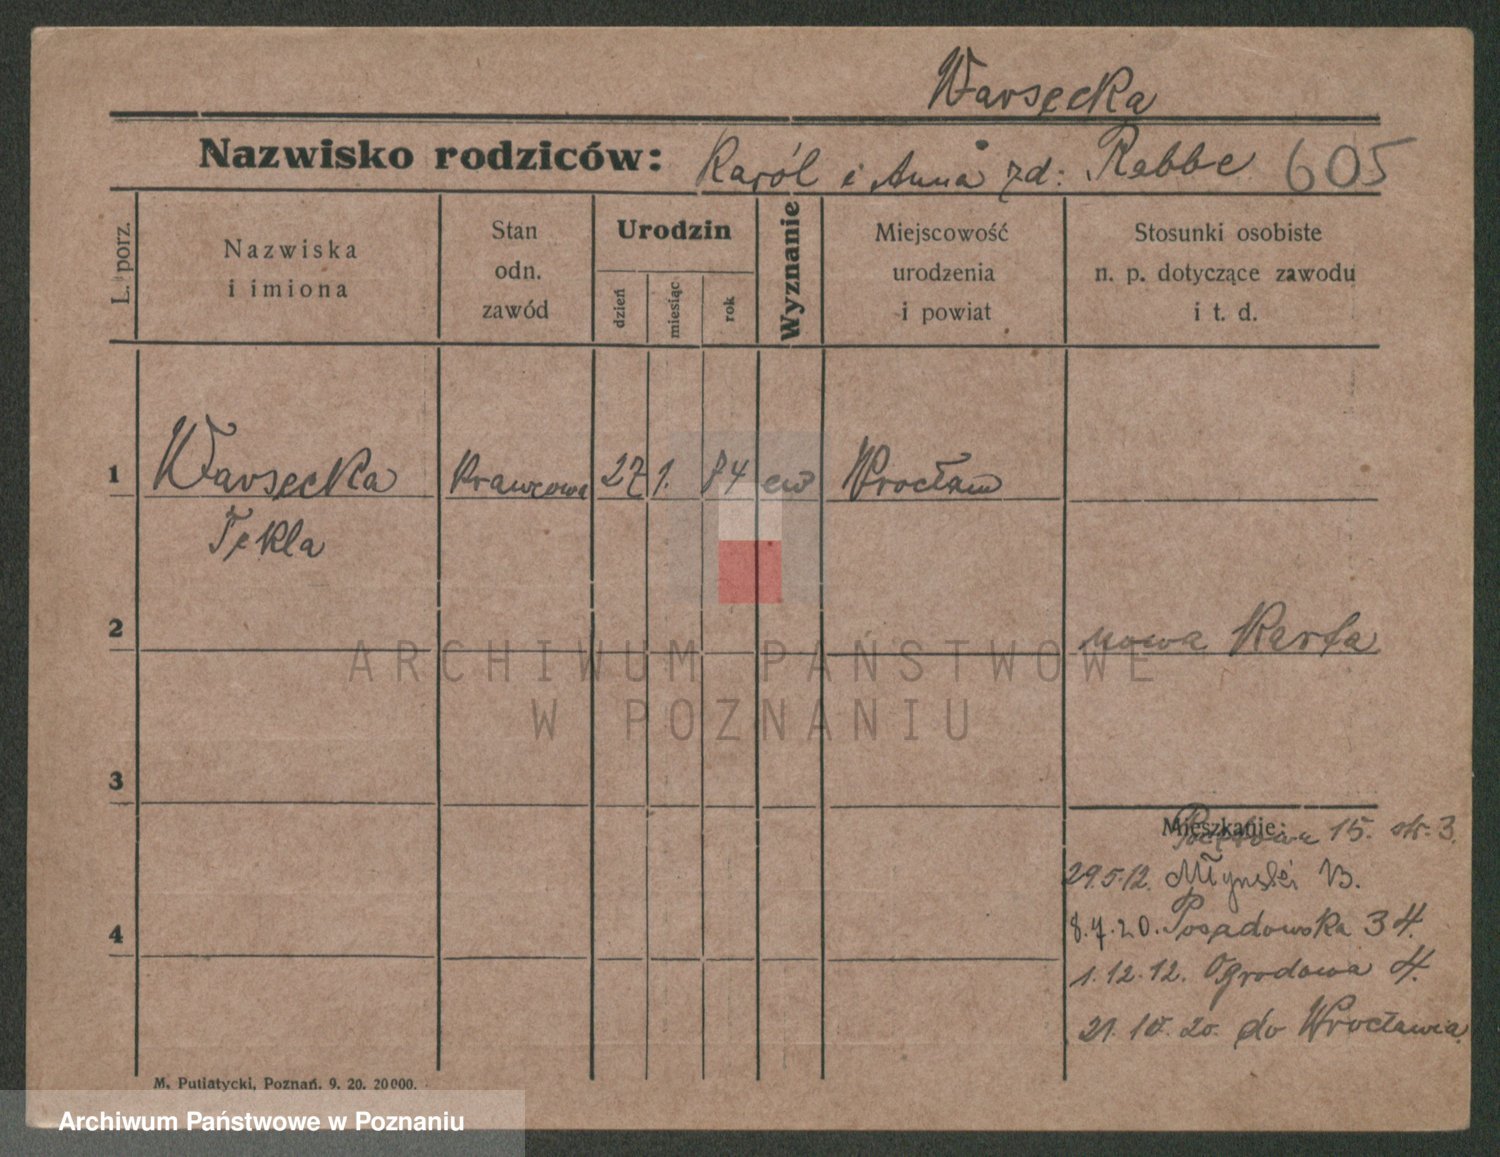 Warsecka
Nazwisko rodziców: Karól i Anna zd: Rabbe 605
L. porz.
Nazwiska
i imiona
Stan
odn.
zawód
Urodzin
dzień
miesiąc
rok
Wyznanie
Miejscowość
urodzenia
i powiat
Stosunki osobiste
n. p. dotyczące zawodu
i t. d.
1 Warsecka Krawcowa 27 1. 84 ew Wrocław
Tekla
2 nowa Karta
ARCHIWUM PAŃSTWOWE
W POZNANIU
3
Mieszkanie:
15. 3.
29.5.12. Młyńska 13.
4 8.7.20. Posadowska 34.
1.12.12. Ogrodowa 4.
21. 10. 20. do Wrocławia.
M. Putiatycki, Poznań. 9. 20. 20000.
Archiwum Państwowe w Poznaniu